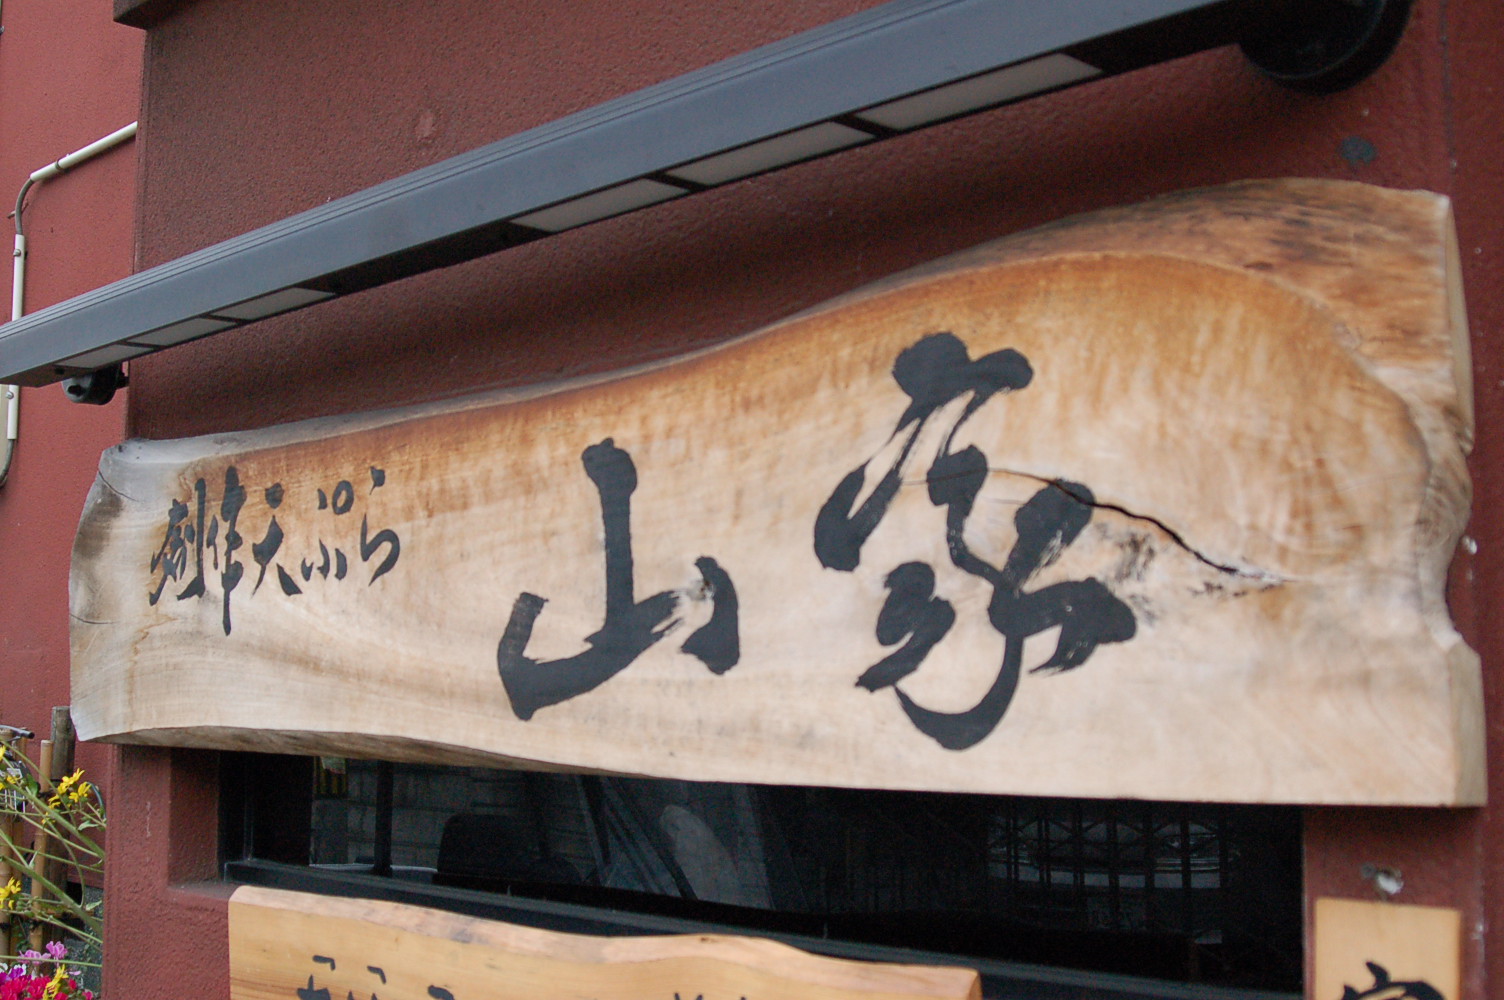 創作天ぷら 山家